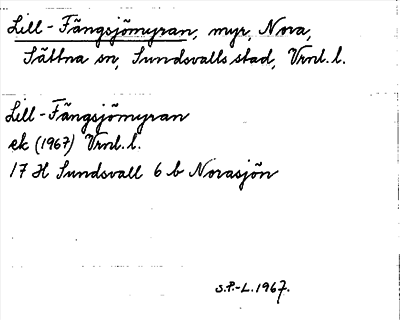 Lill-Fängsjömyran, myr, Nora,
Sättna sn, Sundsvalls stad, Vrnl. l.
Lill-Fängsjömyran
ek (1967) Vrnl. l.
17 H Sundsvall 6 b Norasjön
S.P.-L. 1967.